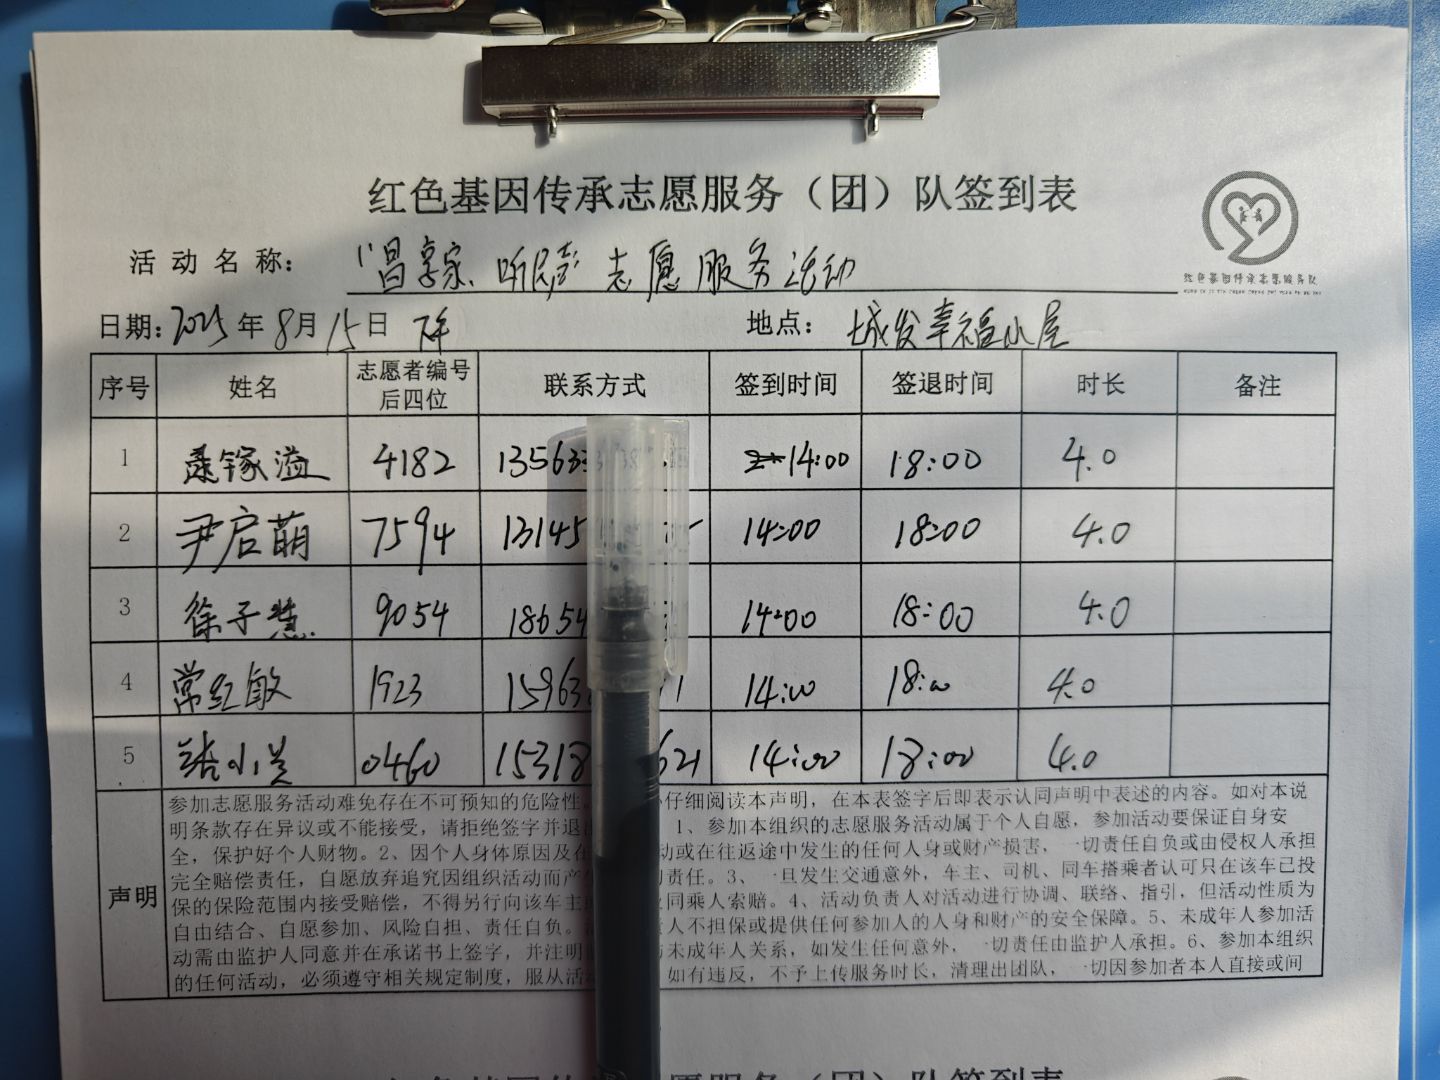 红色基因传承志愿服务（团）队签到表
红色基因传承志愿服务队
活动名称： "昌享家 听民声 志愿服务活动
日期：2025年8月15日 下午 地点： 城发幸福小屋
序号 姓名 志愿者编号后四位 联系方式 签到时间 签退时间 时长 备注
1 聂镓溢 4182 13563 14:00 18:00 4.0
2 尹启萌 7594 13145 14:00 18:00 4.0
3 徐子慧 9054 18654 14:00 18:00 4.0
4 常红敏 1923 15963 14:00 18:00 4.0
5 小兰 0460 15318 621 14:00 18:00 4.0
声明
参加志愿服务活动难免存在不可预知的危险性。 仔细阅读本声明，在本表签字后即表示认同声明中表述的内容。如对本说
明条款存在异议或不能接受，请拒绝签字并退出 1、参加本组织的志愿服务活动属于个人自愿，参加活动要保证自身安
全，保护好个人财物。2、因个人身体原因及在 动或在往返途中发生的任何人身或财产损害，一切责任自负或由侵权人承担
完全赔偿责任，自愿放弃追究因组织活动而产生 责任。3、一旦发生交通意外，车主、司机、同车搭乘者认可只在该车已投
保的保险范围内接受赔偿，不得另行向该车主 同乘人索赔。4、活动负责人对活动进行协调、联络、指引，但活动性质为
自由结合、自愿参加、风险自担、责任自负。 责人不担保或提供任何参加人的人身和财产的安全保障。5、未成年人参加活
动需由监护人同意并在承诺书上签字，并注明 与未成年人关系，如发生任何意外，一切责任由监护人承担。6、参加本组织
的任何活动，必须遵守相关规定制度，服从活动 如有违反，不予上传服务时长，清理出团队，一切因参加者本人直接或间